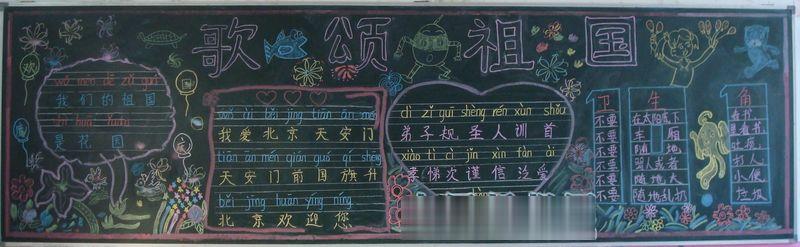 歌颂祖国
欢
wǒ men de zǔ guó
我们的祖国
shì huā yuán
是花园
wǒ ài běi jīng tiān ān mén
我爱北京天安门
tiān ān mén qián guó qí shēng
天安门前国旗升
běi jīng huān yíng níng
北京欢迎您
dì zǐ guī shèng rén xùn shǒu
弟子规圣人训首
xiào tì cì jǐn xìn fàn ài
孝悌次谨信泛爱
卫生角
不要在太阳底下看书
不要车厢里看书
不要随地吐痰
不要骂人或者打人
不要随地大小便
不要随地乱扔垃圾